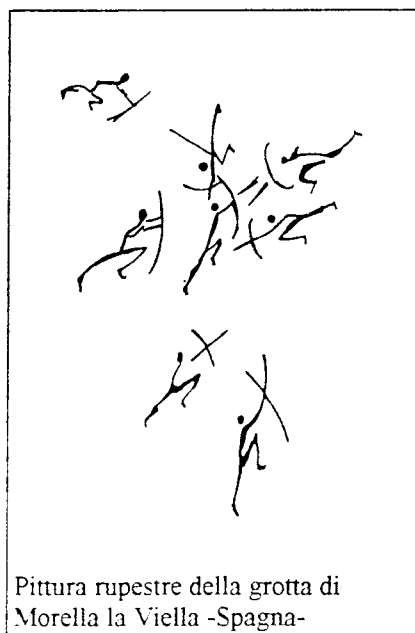 Pittura rupestre della grotta di
Morella la Viella -Spagna-